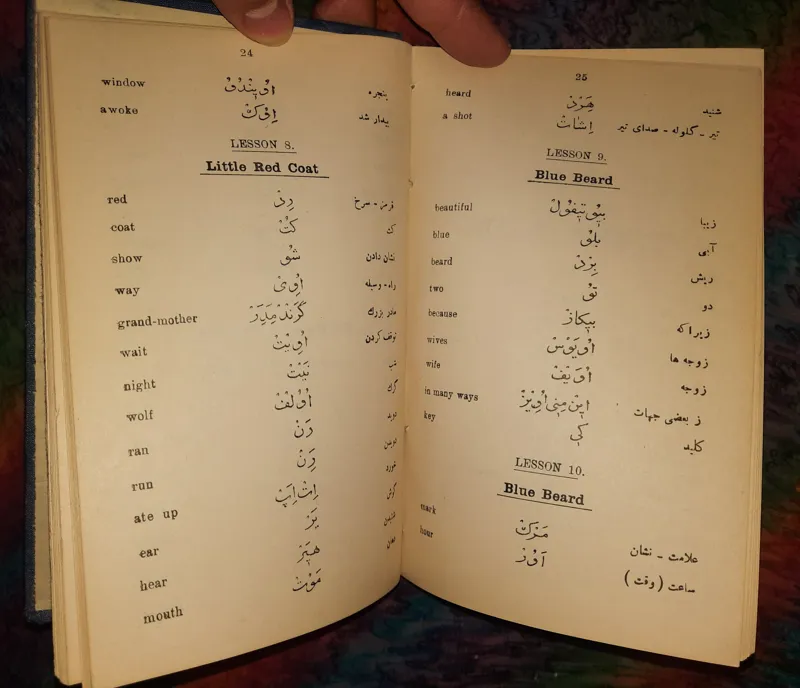 24
window اوُیِنْدُوْ پنجره
awoke اِوُکْ بیدار شد
LESSON 8.
Little Red Coat
red رِدْ قرمز - سرخ
coat کُتْ کت
show شُو نشان دادن
way اوِیْ راه - وسیله
grand-mother گْرَنْدْمَدَرْ مادر بزرگ
wait اوِیْتْ توقف کردن
night نَیْتْ شب
wolf اوُلْفْ گرگ
ran رَنْ دوید
run رَنْ دویدن
ate up اِتْ اَپْ خورد
ear یَرْ گوش
hear هیَرْ شنیدن
mouth مَوْثْ دهان
25
heard هِرْدْ شنید
a shot اِشاتْ تیر - گلوله - صدای تیر
LESSON 9.
Blue Beard
beautiful بیُوتیفُولْ زیبا
blue بلُو آبی
beard بِرْدْ ریش
two تُو دو
because بیکازْ زیرا که
wives اوَیْوْسْ زوجه ها
wife اوَیْفْ زوجه
in many ways اینْ مِنی اوِیْزْ ز بعضی جهات
key کی کلید
LESSON 10.
Blue Beard
mark مَرْکْ علامت - نشان
hour اَوَرْ ساعت (وقت)